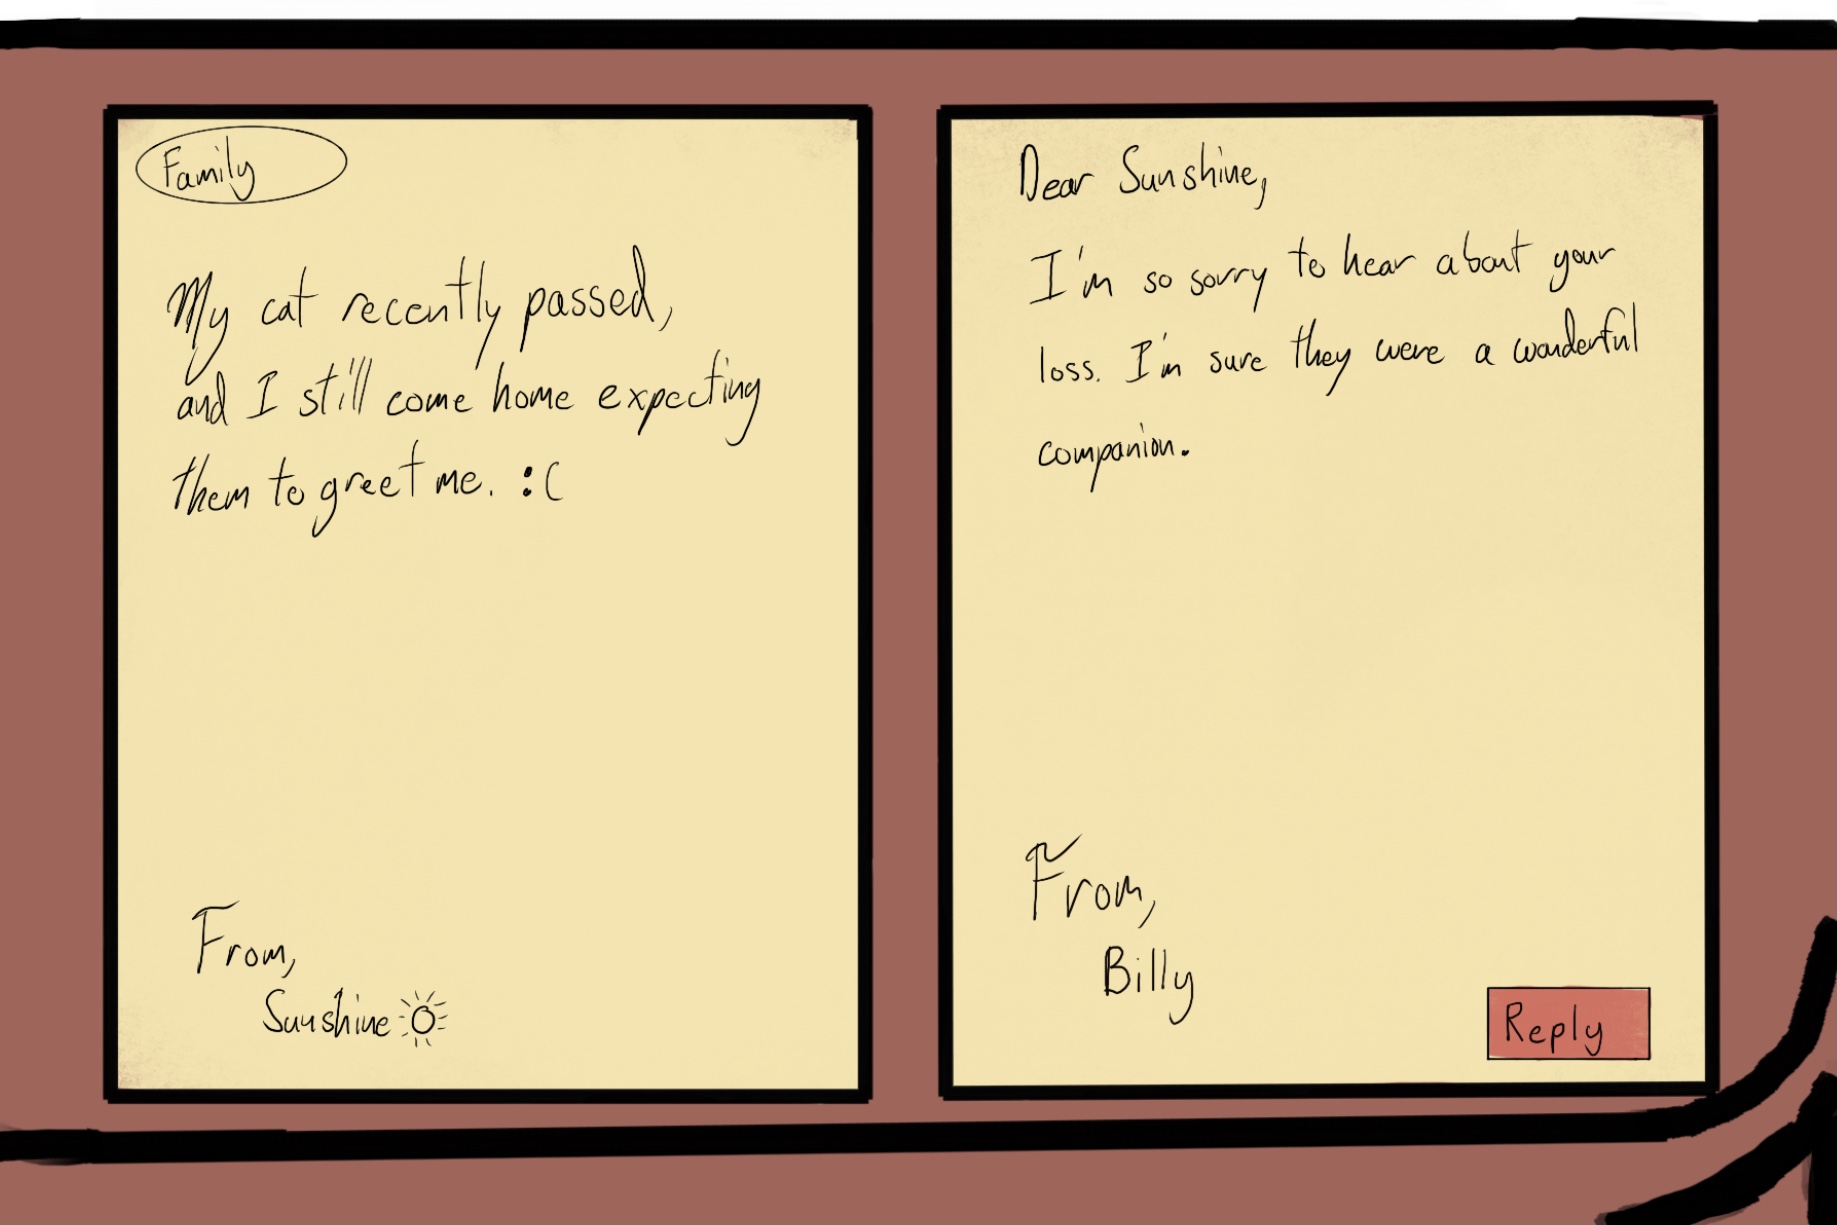 Family
My cat recently passed,
and I still come home expecting
them to greet me. :(
From,
Sunshine
Dear Sunshine,
I'm so sorry to hear about your
loss. I'm sure they were a wonderful
companion.
From,
Billy
Reply